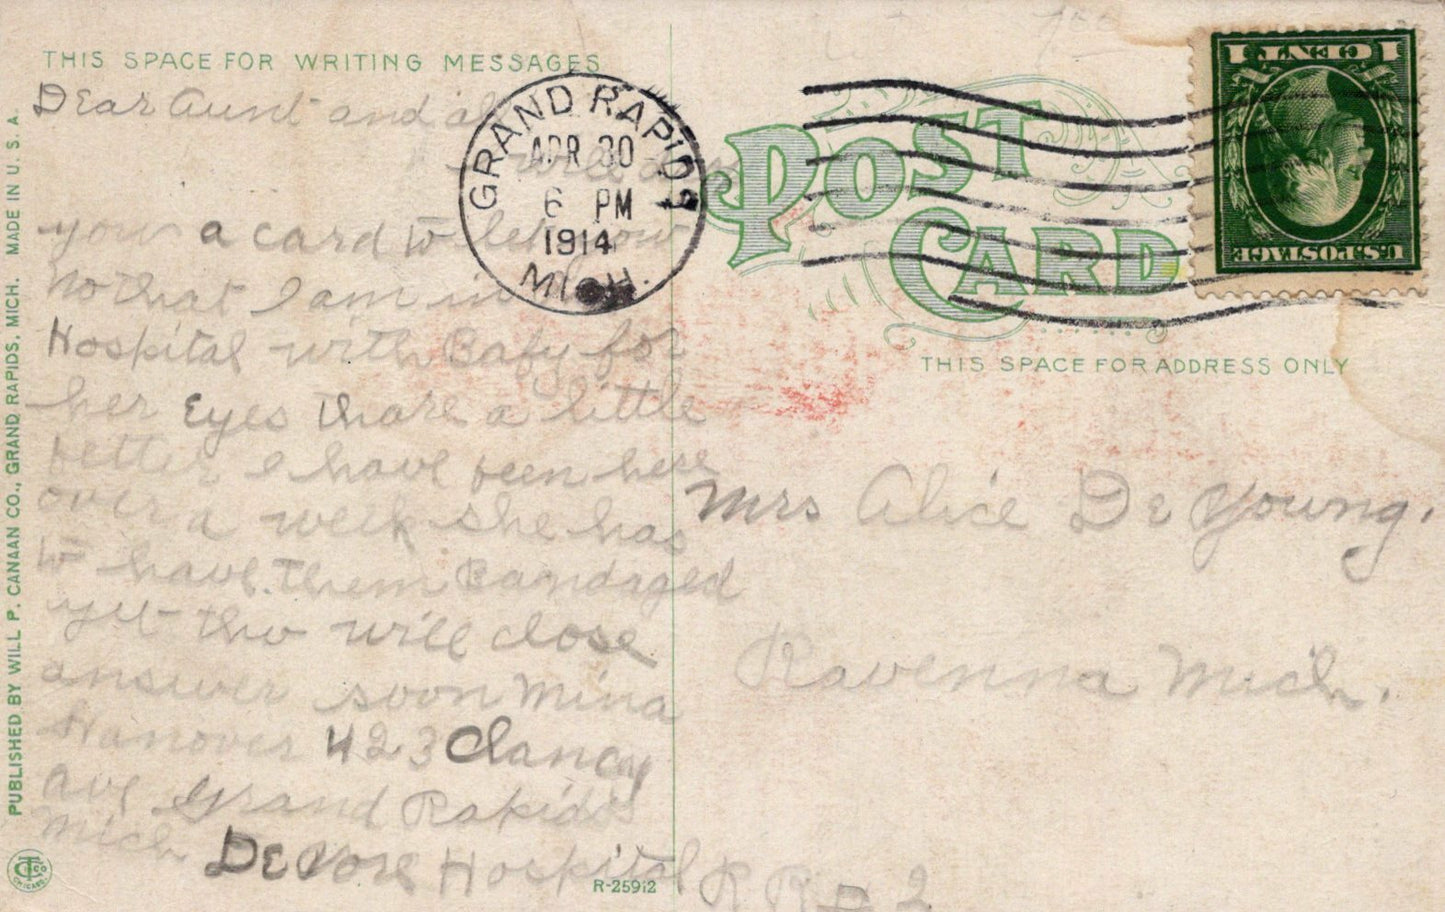 THIS SPACE FOR WRITING MESSAGES
Dear Aunt and al
will drop
you a card to let you
no that I am in
Hospital with Baby for
her Eyes thare a little
better I have been here
over a week she has
to have them Bandaged
yet tho will close
answer soon Mina
Hanover 423 Clancy
Ave Grand Rapids
Mich DeVore Hospital R R 2
R-25912
GRAND RAPIDS
APR 30
6 PM
1914
MICH.
POST
CARD
1 CENT 1
U.S. POSTAGE
THIS SPACE FOR ADDRESS ONLY
Mrs Alice De Young.
Ravenna Mich.
PUBLISHED BY WILL P. CANAAN CO., GRAND RAPIDS, MICH. MADE IN U. S. A.
CHICAGO